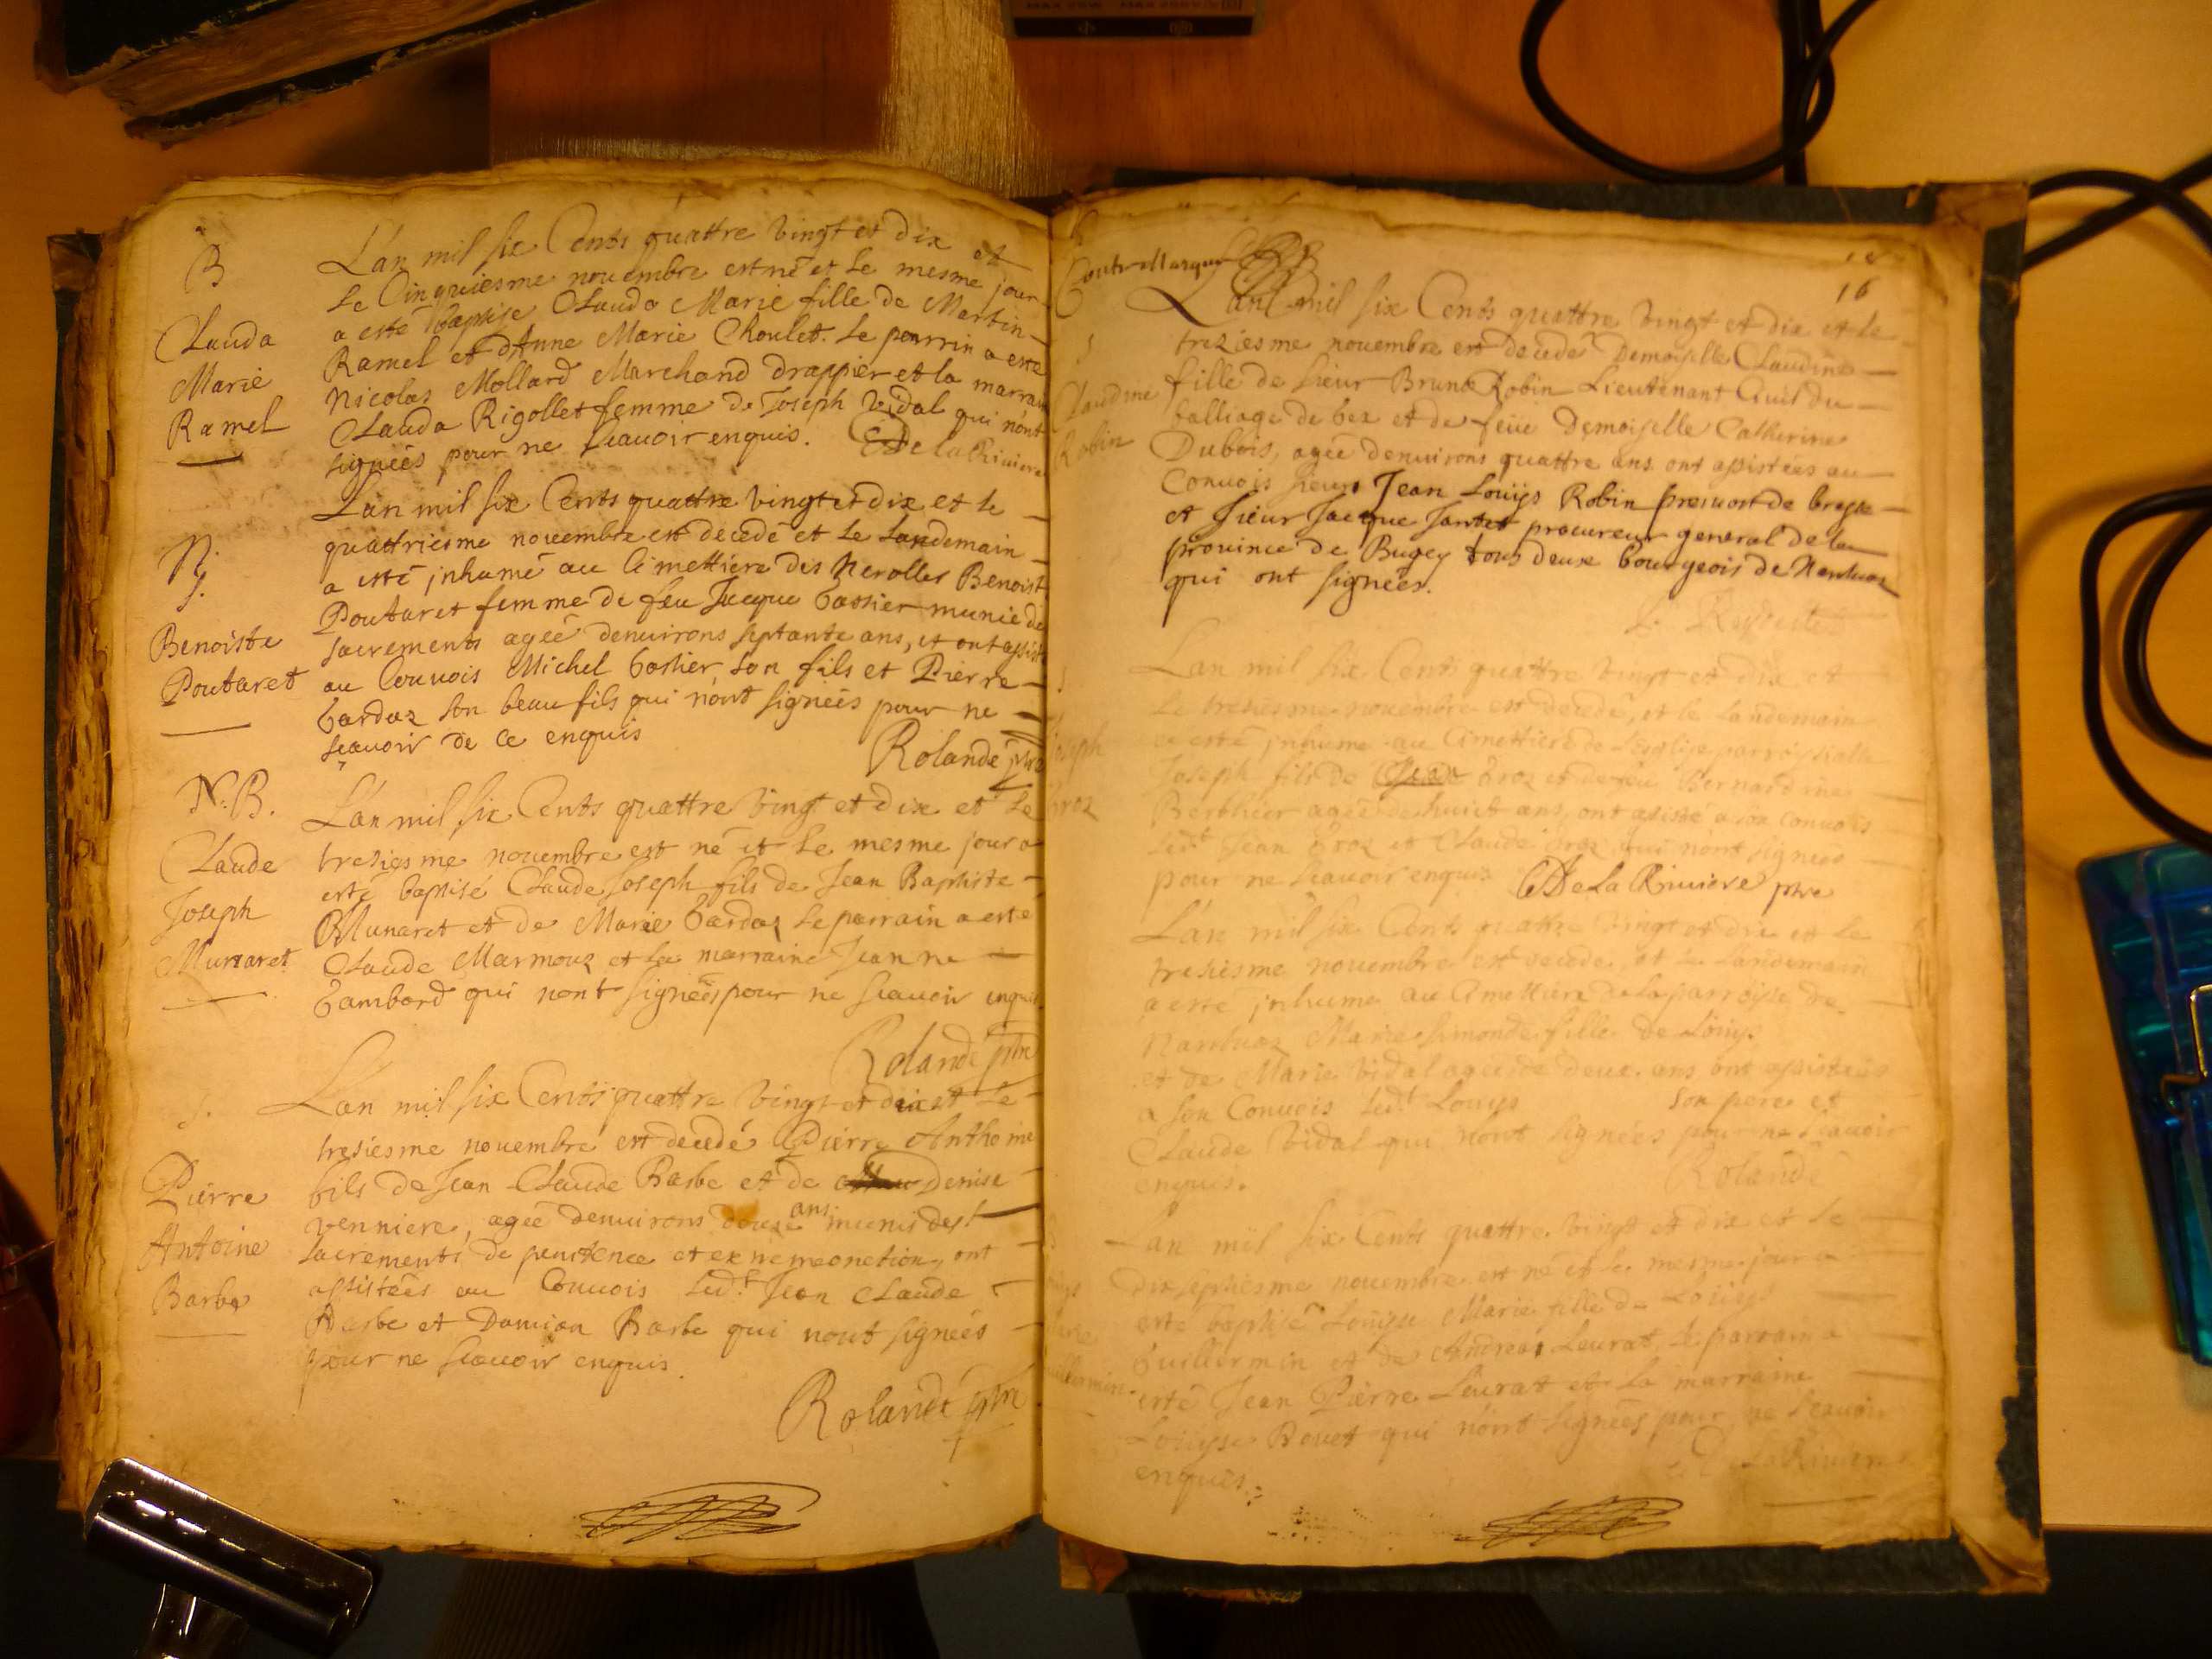 B
Clauda
Marie
Ramel
L'an mil six Cents quattre vingt et dix et
le Cinquiesme novembre est né et le mesme jour
a esté baptisé Clauda Marie fille de Martin
Ramel et d'Anne Marie Choulet. le parrin a esté
Nicolas Mollard Marchand drappier et la marraine
Clauda Rigollet femme de Joseph Vidal qui n'ont
signéés pour ne scavoir enquis. De la Riviere
N.
Benoiste
Poutaret
L'an mil six Cents quattre vingt et dix et le
quattriesme novembre est decedé et le landemain
a esté inhumé au Cimettiere des Nerolles Benoist
Poutaret femme de feu Jacque munie de
sacrements agéé denuirons septante ans, et ont assist
au Convois Michel son fils et Pierre
son beau fils qui n'ont signéés pour ne
scavoir de ce enquis
Rolande ptre
N. B.
Claude
Joseph
Munaret
L'an mil six Cents quattre vingt et dix et le
tresiesme novembre est né et le mesme jour a
esté baptisé Claude Joseph fils de Jean Baptiste
Munaret et de Marie le parrain a esté
Claude Marmouz et la marraine Jeanne
qui nont signéés pour ne scavoir enquis
Rolande ptre
Pierre
Antoine
Barbe
L'an mil six Cents quattre vingt et dix et le
tresiesme novembre est decedé Pierre Anthoine
fils de Jean Claude Barbe et de Denise
Venniere, agéé denuirons douze ans munis des
sacrements de penitence et extremeonction, ont
assistéés au Convois led.t Jean Claude
Barbe et Damian Barbe qui nont signéés
pour ne scavoir enquis.
Rolande ptre
16
S
Claudine
Robin
L'an mil six Cents quattre vingt et dix et le
treziesme novembre est decedé Demoiselle Claudine
fille de sieur Bruno Robin Lieutenant Civil du
balliage de bex et de feüe Demoiselle Catherine
Dubois, agéé denuirons quattre ans ont assistéés au
Convois sieurs Jean Loüys Robin
et sieur Jacque procureur general de la
province de Bugey tous deux bourgeois de Nantuaz
qui ont signéés.
Joseph
L'an mil six Cents quattre vingt et dix et
le tresiesme novembre est decedé, et le landemain
a esté inhumé au Cimettiere de l'esglise parroissialle
Joseph fils de Jean et de feu Bernardine
Berthier agéé de huict ans, ont assisté a son convois
led.t Jean et Claude qui n'ont signéés
pour ne scavoir enquis De La Riviere ptre
L'an mil six Cents quattre vingt et dix et le
tresiesme novembre est decedé, et le landemain
a esté inhumé au Cimettiere de la parroisse de
Nantuaz Marie Simonde fille de Loüys
et de Marie Vidal agéé de deux ans ont assistéés
a son Convois led.t Louys son pere et
Claude Vidal qui n'ont signéés pour ne scavoir
enquis. Rolande
L'an mil six Cents quattre vingt et dix et le
dix septiesme novembre est né et le mesme jour a
esté baptisé Loüyse Marie fille de Loüys
Guillermin et de Andreá Leurat le parrain a
esté Jean Pierre Leurat et la marraine
Loüyse Bouet qui n'ont signéés pour ne scavoir
enquis. De La Riviere